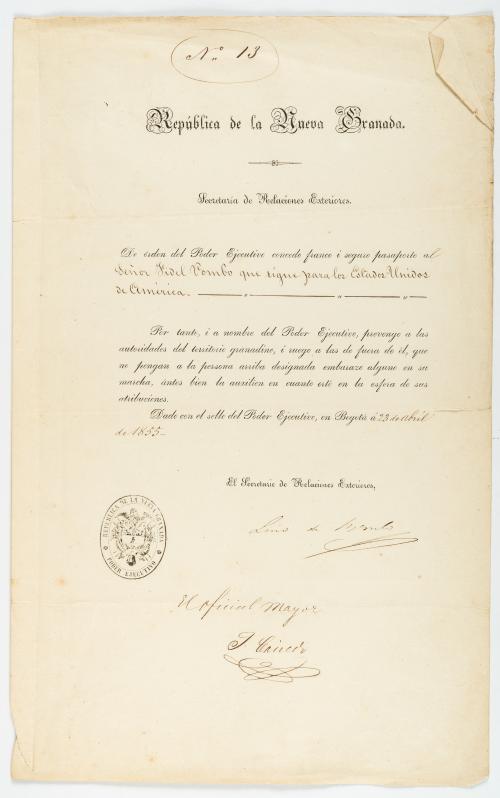 Nº 13
República de la Nueva Granada.
Secretaría de Relaciones Exteriores.
De órden del Poder Ejecutivo concedo franco i seguro pasaporte al
Señor Fidel Pombo que sigue para los Estados Unidos
de América.
Por tanto, i a nombre del Poder Ejecutivo, prevengo a las
autoridades del territorio granadino, i ruego a las de fuera de él, que
no pongan a la persona arriba designada embarazo alguno en su
marcha, ántes bien la auxilien en cuanto esté en la esfera de sus
atribuciones.
Dado con el sello del Poder Ejecutivo, en Bogotá á 23 de Abril
de 1855
El Secretario de Relaciones Exteriores,
REPUBLICA DE LA NUEVA GRANADA
PODER EJECUTIVO
Lino de Pombo
El oficial Mayor